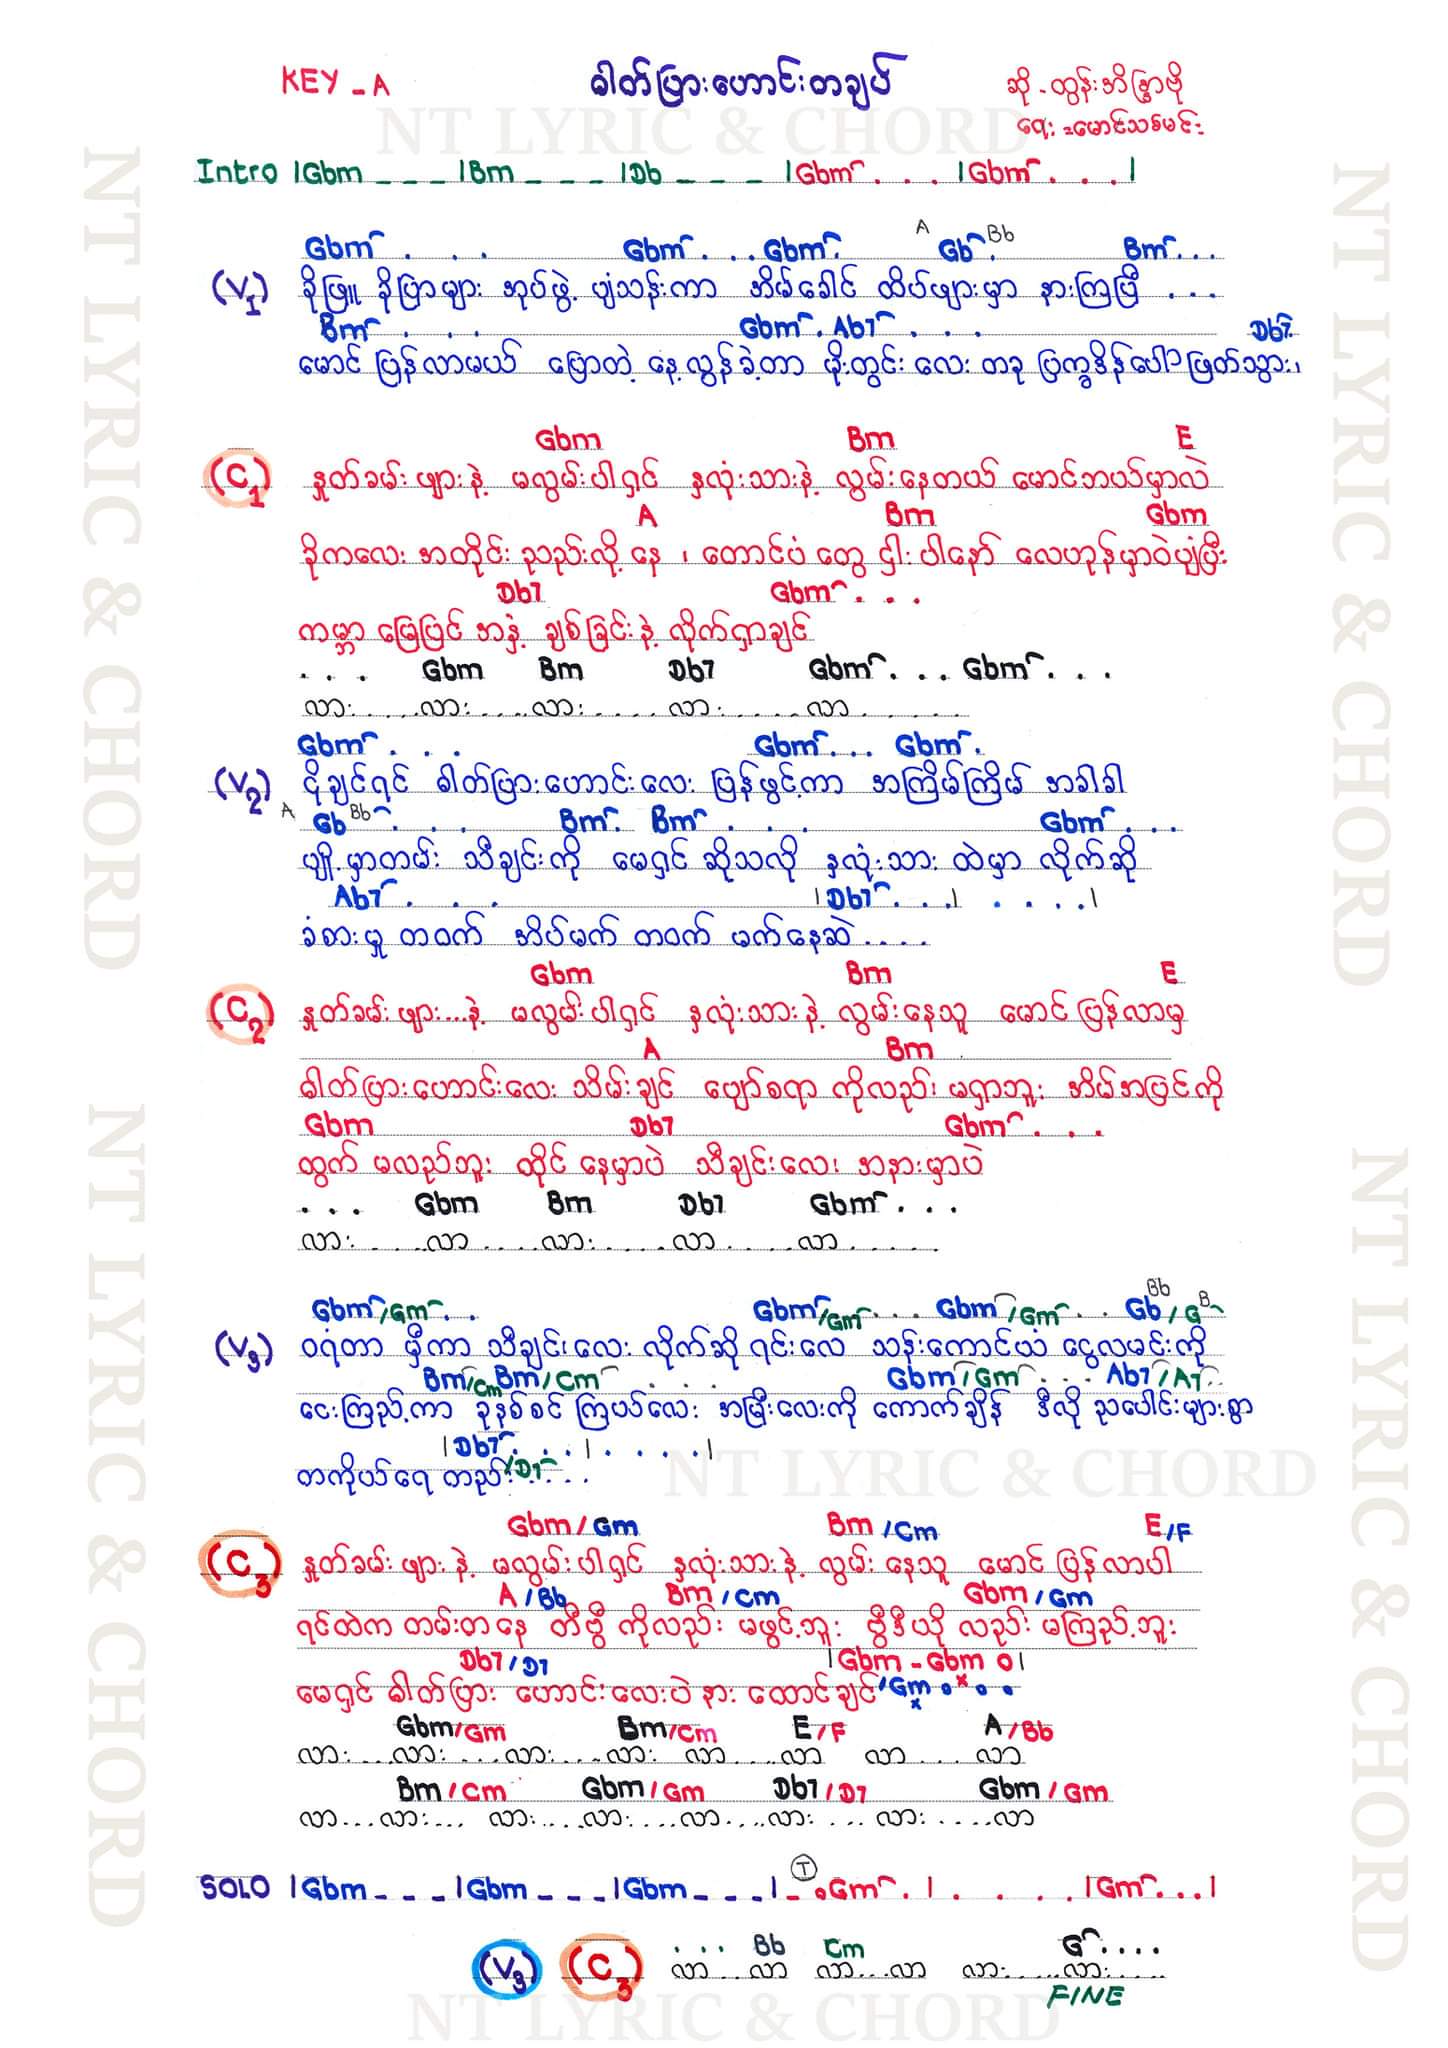 KEY - A
ဓါတ်ပြားဟောင်းတချပ်
ဆို - ထွန်းအိန္ဒြာဗို
ရေး - မောင်သစ်မင်း
NT LYRIC & CHORD
Intro |Gbm _ _ _ |Bm _ _ _ |Db _ _ _ |Gbm . . . |Gbm . . . |
Gbm . . . Gbm . . . Gbm . A Gb Bb . Bm . . .
(V1) ခိုဖြူ ခိုပြာများ အုပ်ဖွဲ့ ပျံသန်းကာ အိမ်ခေါင် ထိပ်ဖျားမှာ နားကြပြီ . . .
Bm . . . Gbm . Ab7 . . . Db7 .
မောင် ပြန်လာမယ် ပြောတဲ့ နေ့လွန်ခဲ့တာ မိုးတွင်း လေး တခု ပြက္ခဒိန်ပေါ်ဖြတ်သွား၊
Gbm Bm E
(C1) နှုတ်ခမ်း ဖျားနဲ့ မလွမ်းပါရှင် နှလုံးသားနဲ့ လွမ်းနေတယ် မောင်ဘယ်မှာလဲ
A Bm Gbm
ခိုကလေး အတိုင်း ညည်းလို့ နေ ၊ တောင်ပံ တွေ ငှါးပါနော် လေဟုန်မှာဝဲပျံပြီး
Db7 Gbm . . .
ကမ္ဘာ မြေပြင် အနှံ့ ချစ်ခြင်းနဲ့ လိုက်ရှာချင်
. . . Gbm Bm Db7 Gbm . . . Gbm . . .
လား . . . . လား . . . . လား . . . . လား . . . . လာ . . . . . .
Gbm . . . Gbm . . . Gbm .
(V2) ငိုချင်ရင် ဓါတ်ပြားဟောင်းလေး ပြန်ဖွင့်ကာ အကြိမ်ကြိမ် အခါခါ
A Gb Bb . . . Bm . Bm . . . Gbm . . .
မျှို့မှာတမ်း သီချင်းကို မေရှင် ဆိုသလို နှလုံးသား ထဲမှာ လိုက်ဆို
Ab7 . . . |Db7 . . . | . . . . |
ခံစားမှု တဝက် အိပ်မက် တဝက် မက်နေဆဲ . . . .
Gbm Bm E
(C2) နှုတ်ခမ်း ဖျား....နဲ့ မလွမ်းပါရှင် နှလုံးသားနဲ့ လွမ်းနေသူ မောင် ပြန်လာမှ
A Bm
ဓါတ်ပြားဟောင်းလေး သိမ်းချင် ပျော်စရာ ကိုလည်း မရှာဘူး အိမ်အပြင်ကို
Gbm Db7 Gbm . . .
ထွက် မလည်ဘူး ထိုင် နေမှာပဲ သီချင်းလေး အနားမှာပဲ
. . . Gbm Bm Db7 Gbm . . .
လား . . . . လာ . . . . လား . . . . လာ . . . . လာ . . . . .
Gbm/Gm . . Gbm/Gm . . . Gbm/Gm . . Gb Bb/G B
(V3) ဝရံတာ မှီကာ သီချင်းလေး လိုက်ဆို ရင်းလေ သန်းကောင်ယံ ငွေလမင်းကို
Bm/Cm Bm/Cm . . . Gbm/Gm . . . Ab7/A7 . .
ငေးကြည့်ကာ ခုနှစ်စင် ကြယ်လေး အမြီးလေးကို ကောက်ချိန် ဒီလို ညပေါင်းများစွာ
|Db7 . . . | . . . . |
တကိုယ်ရေ တည်း /D7 . . . .
NT LYRIC & CHORD
Gbm/Gm Bm/Cm E/F
(C3) နှုတ်ခမ်း ဖျား နဲ့ မလွမ်းပါရှင် နှလုံးသားနဲ့ လွမ်း နေသူ မောင် ပြန်လာပါ
A/Bb Bm/Cm Gbm/Gm
ရင်ထဲက တမ်းတနေ တီဗွီ ကိုလည်း မဖွင့်ဘူး ဗွီဒီယို လည်း မကြည့်ဘူး
Db7/D7 |Gbm - Gbm o|
မေရှင် ဓါတ်ပြား ဟောင်းလေးပဲ နား ထောင်ချင် /Gm . x . .
Gbm/Gm Bm/Cm E/F A/Bb
လား . . . လား . . . လား . . . လား လာ . . . လာ လာ . . . လာ
Bm/Cm Gbm/Gm Db7/D7 Gbm/Gm
လာ . . . လား . . . လား . . . လား . . . လာ . . . လား . . . လား . . . . လာ
SOLO |Gbm _ _ _ |Gbm _ _ _ |Gbm _ _ _ | _ T . Gm . | . . . . |Gm . . . |
. . . Bb Cm G . . . .
(V3) (C3) လာ . . . လာ လာ . . . လာ လား . . . . လား . . . .
FINE
NT LYRIC & CHORD
NT LYRIC & CHORD
NT LYRIC & CHORD
NT LYRIC & CHORD
NT LYRIC & CHORD